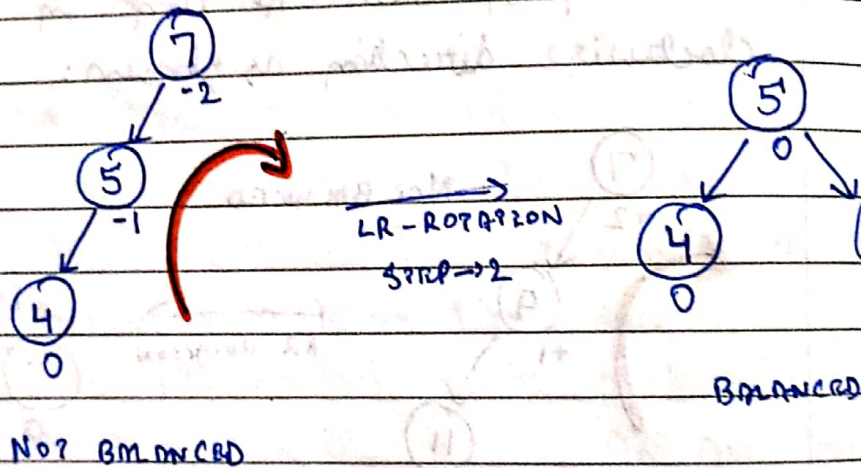 7
-2
5
-1
4
0
NOT BALANCED
LR-ROTATION
STEP→2
5
0
4
0
BALANCED